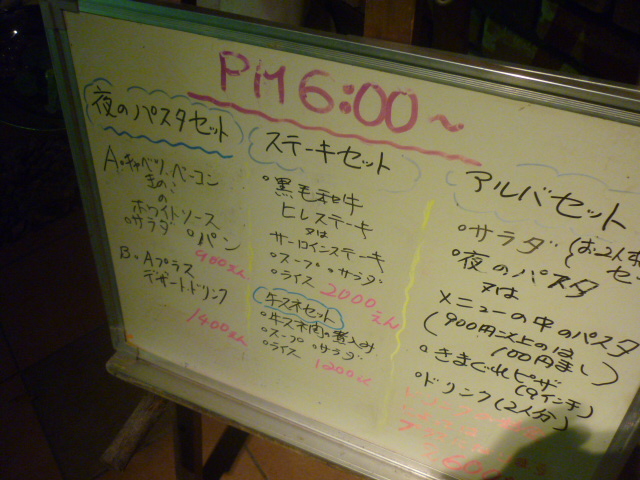 PM6:00～
夜のパスタセット
A。キャベツ、ベーコン
きのこ
の
ホワイトソース
°サラダ °パン
900えん
B。Aプラス
デザート、ドリンク
1400えん
ステーキセット
°黒毛和牛
ヒレステーキ
又は
サーロインステーキ
°スープ °サラダ
°ライス
2000えん
牛スネセット
°牛スネ肉の煮込み
°スープ °サラダ
°ライス
1200
アルバセット
°サラダ
°夜のパスタ
又は
メニューの中のパスタ
(900円以上のは
100円まし)
°きまぐれピザ
(9インチ)
°ドリンク(2人分)